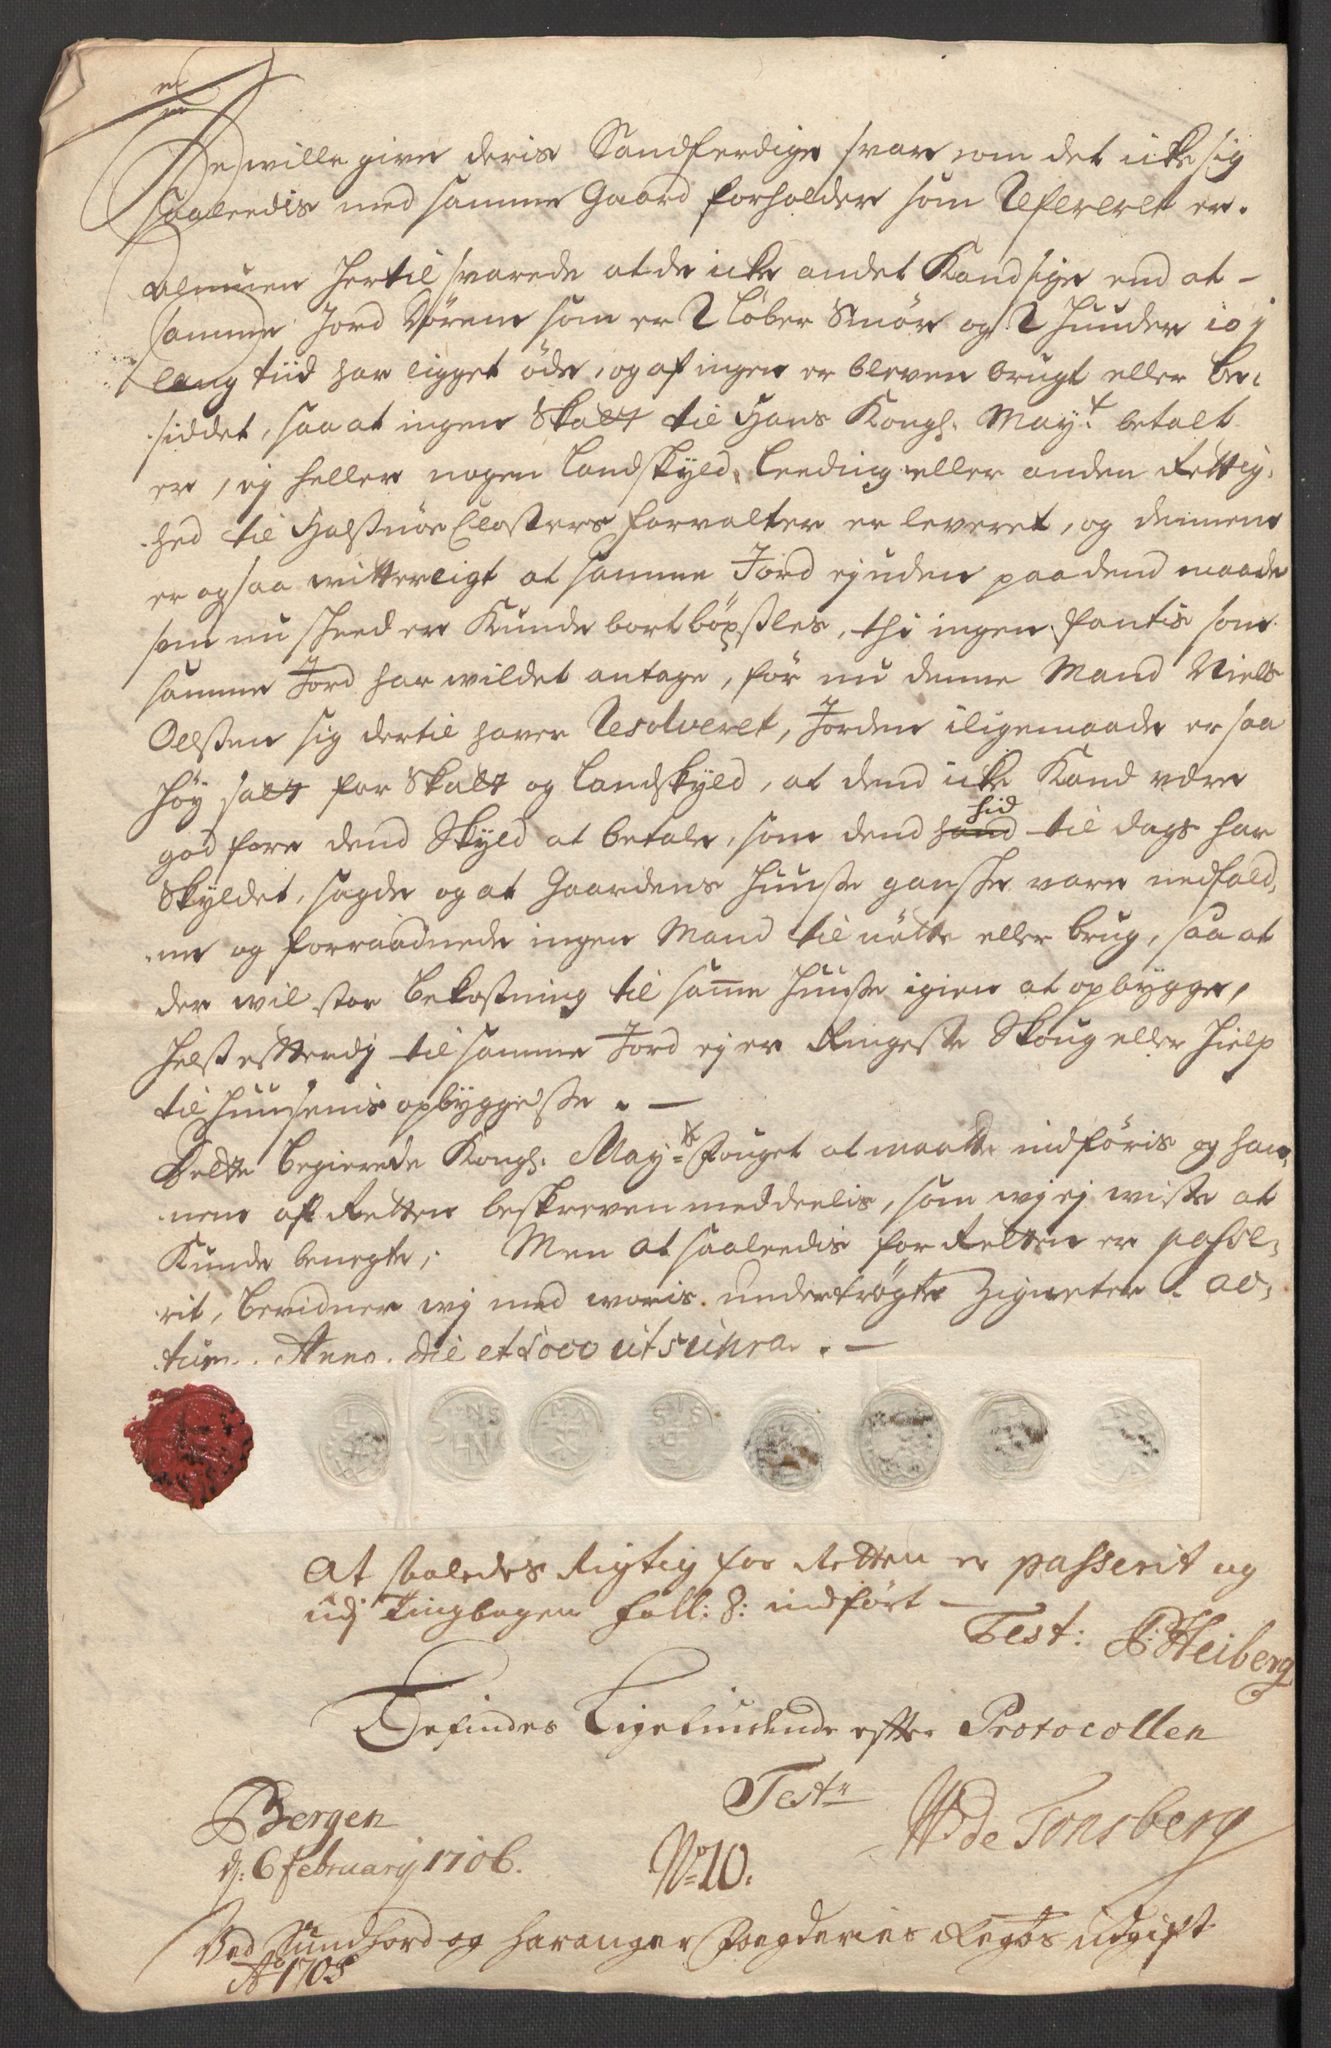 De wille give deris Sandferdige svar om det icke sig
saaleedis med samme Gaard forholder som Refereret er.
Almuen hertil svarede at de icke andet Kand sige end at
samme Jord som er 2 Løber Smør og 2 Huuder i
lang tiid har ligget øde, og af ingen er bleven brugt eller be-
siddet, saa at ingen Skatt til Hans Kongl. Mayt. betalt
er, ej heller nogen Landskyld, Leeding eller anden Rettig-
hed til Halsnøe Closters forvalter er leveret, og dennem
er ogsaa witterligt at samme Jord ej uden paa dend maade
som nu skeed er Kunde bortbøxles, thi ingen fantis som
samme Jord har wildet antage, før nu denne Mand Niels
Olssen sig dertil haver Resolveret, Jorden iligemaade er saa
høy satt for Skatt og Landskyld, at dend icke Kand være
god fore dend Skyld at betale, som dend hid til dags har
Skyldet, sagde og at Gaardens Huuse gansche vare nedfald-
ne og forraadnede ingen Mand til nøtte eller brug, saa at
der wil stor bekostning til samme Huuse igien at opbygge,
helst efterdj til samme Jord ej er Ringeste Skoug eller Hielp
til Huusenis opbyggelse. -
Dette begierede Kongl. Mayts Fouget at maatte indføris og han-
nem af Retten beskreven meddeelis, som wj ej wiste at
Kunde benegte; Men at saaleedis for Retten er passe-
rit, bevidner wj med woris undertrøgte Zigneter. Ac-
tum. Anno. die et loco ut supra. -
At saaledes Rigtig for Retten er passerit og
udj Tingbogen foll: 8: indført -
Test: Heiberg
Befindes Ligeliudende efter Protocollen
Test
Bergen
d. 6 februarij 1706.
de Tonsberg
No 10.
Ved Sundhord og Haranger Fogderies Regbs udgift
Ao 1705